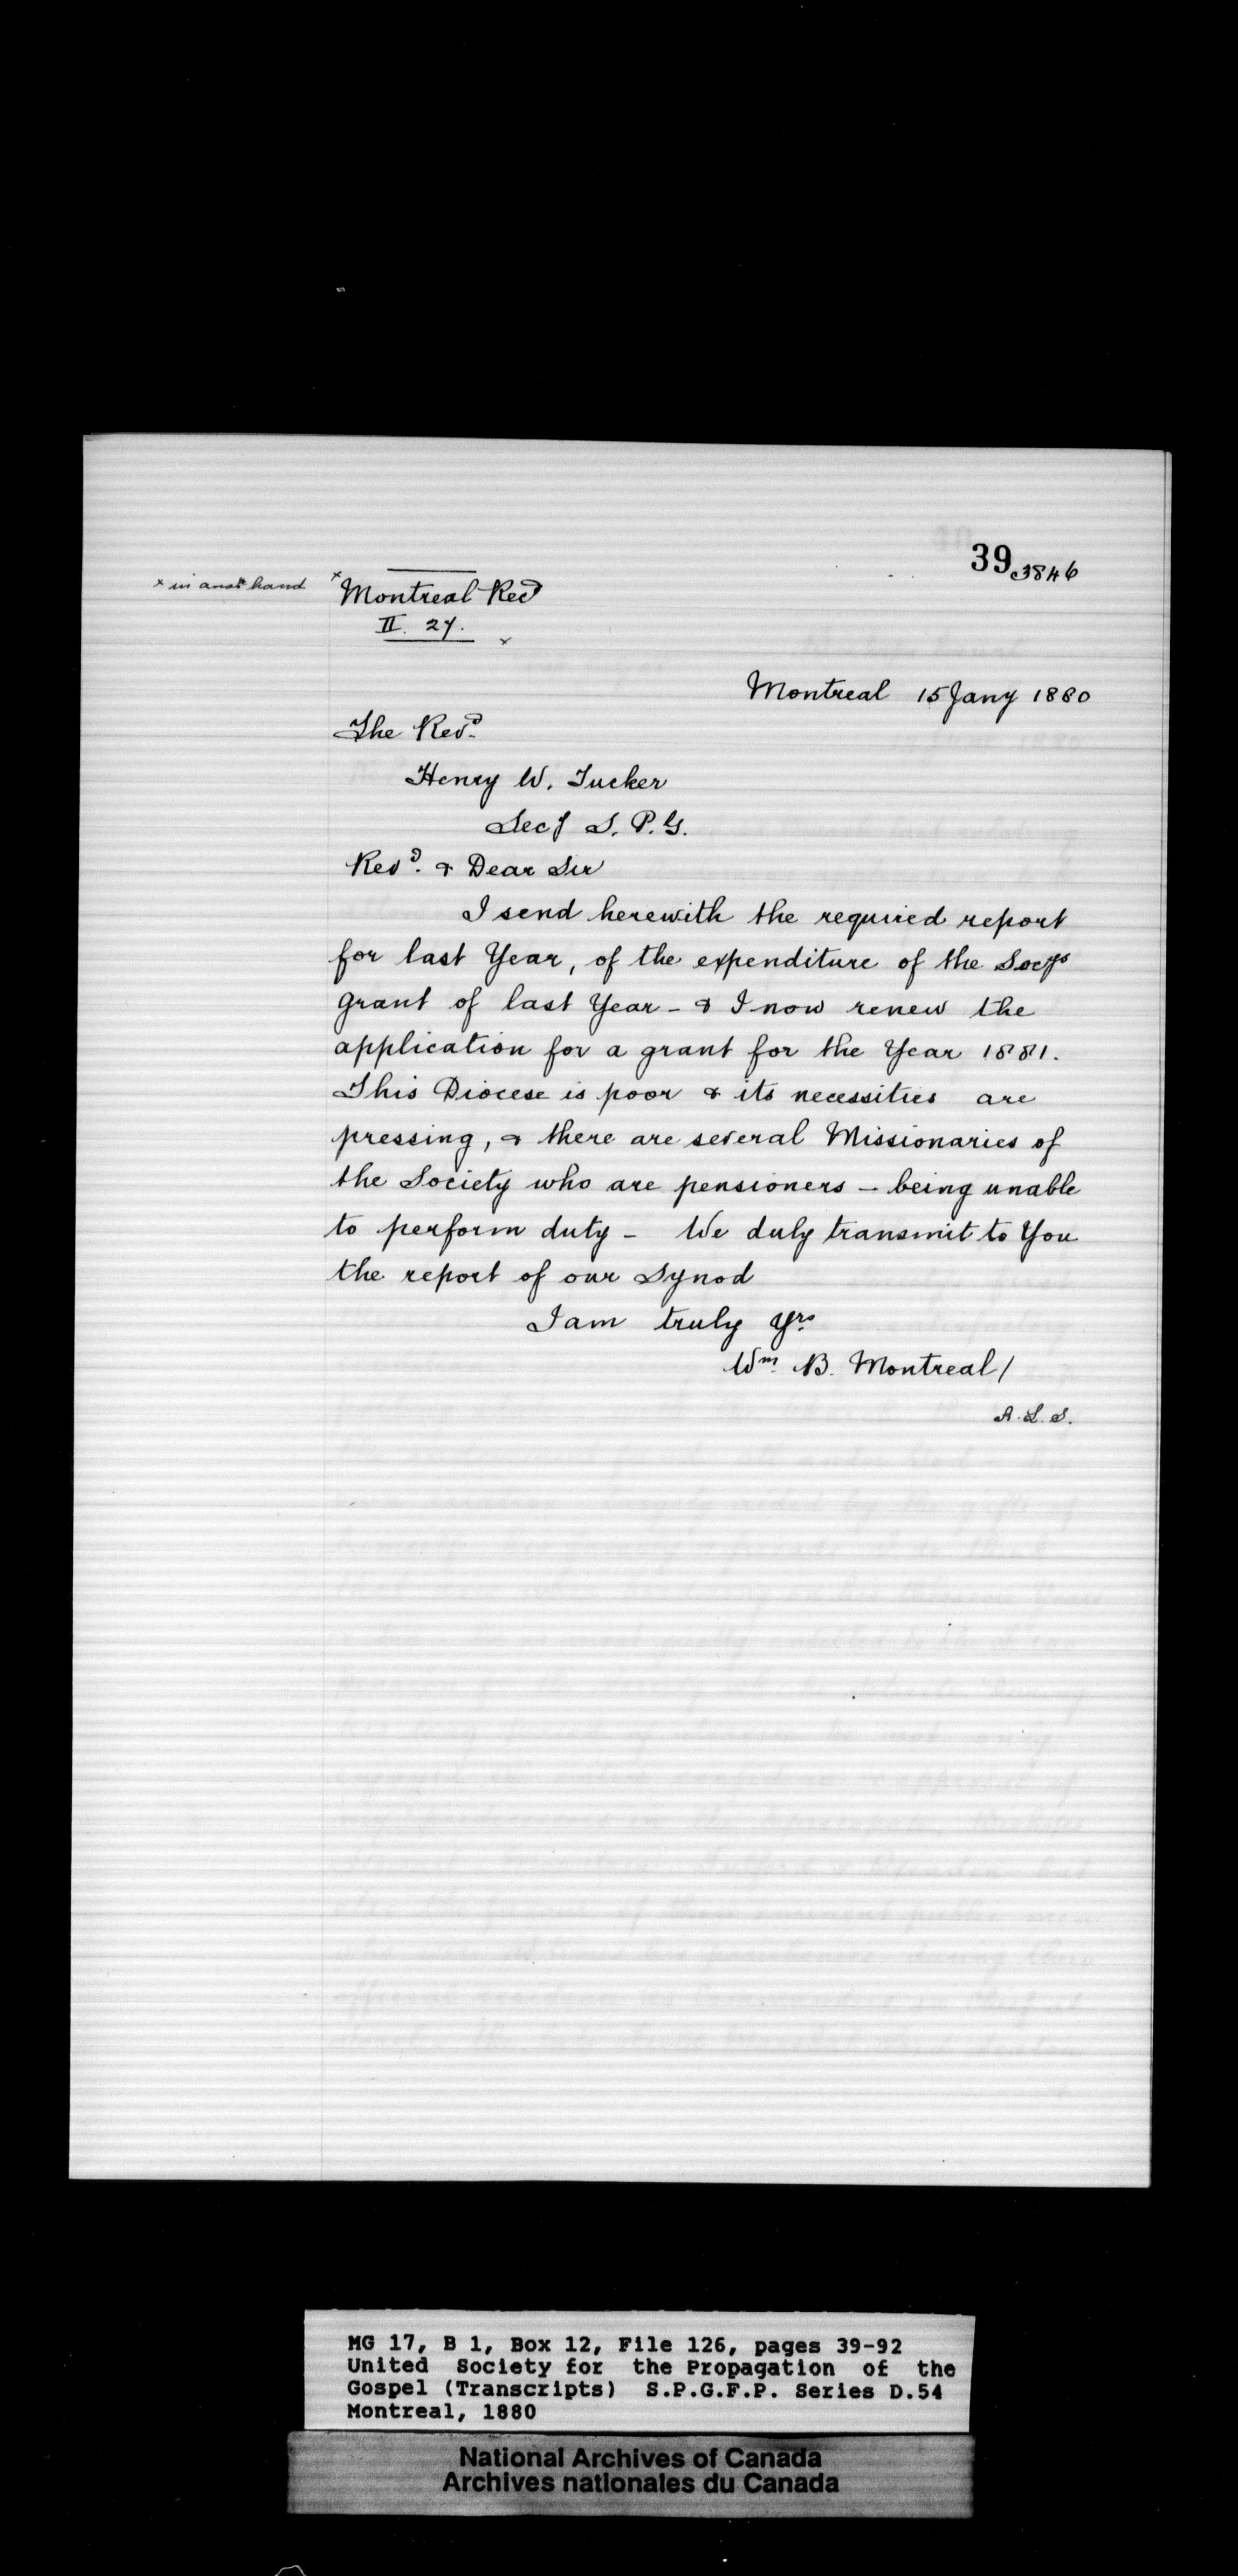 39 3846
x in anotr hand
x Montreal Recd
II. 27. x
Montreal 15 Jany 1880
The Revd.
Henry W. Tucker
Secy S. P. G.
Revd. & Dear Sir
I send herewith the required report
for last Year, of the expenditure of the Socys
grant of last Year - & I now renew the
application for a grant for the Year 1881.
This Diocese is poor & its necessities are
pressing, & there are several Missionaries of
the Society who are pensioners - being unable
to perform duty - We duly transmit to You
the report of our Synod
I am truly Yrs.
Wm. B. Montreal /
A. L. S.
MG 17, B 1, Box 12, File 126, pages 39-92
United Society for the Propagation of the
Gospel (Transcripts) S.P.G.F.P. Series D.54
Montreal, 1880
National Archives of Canada
Archives nationales du Canada